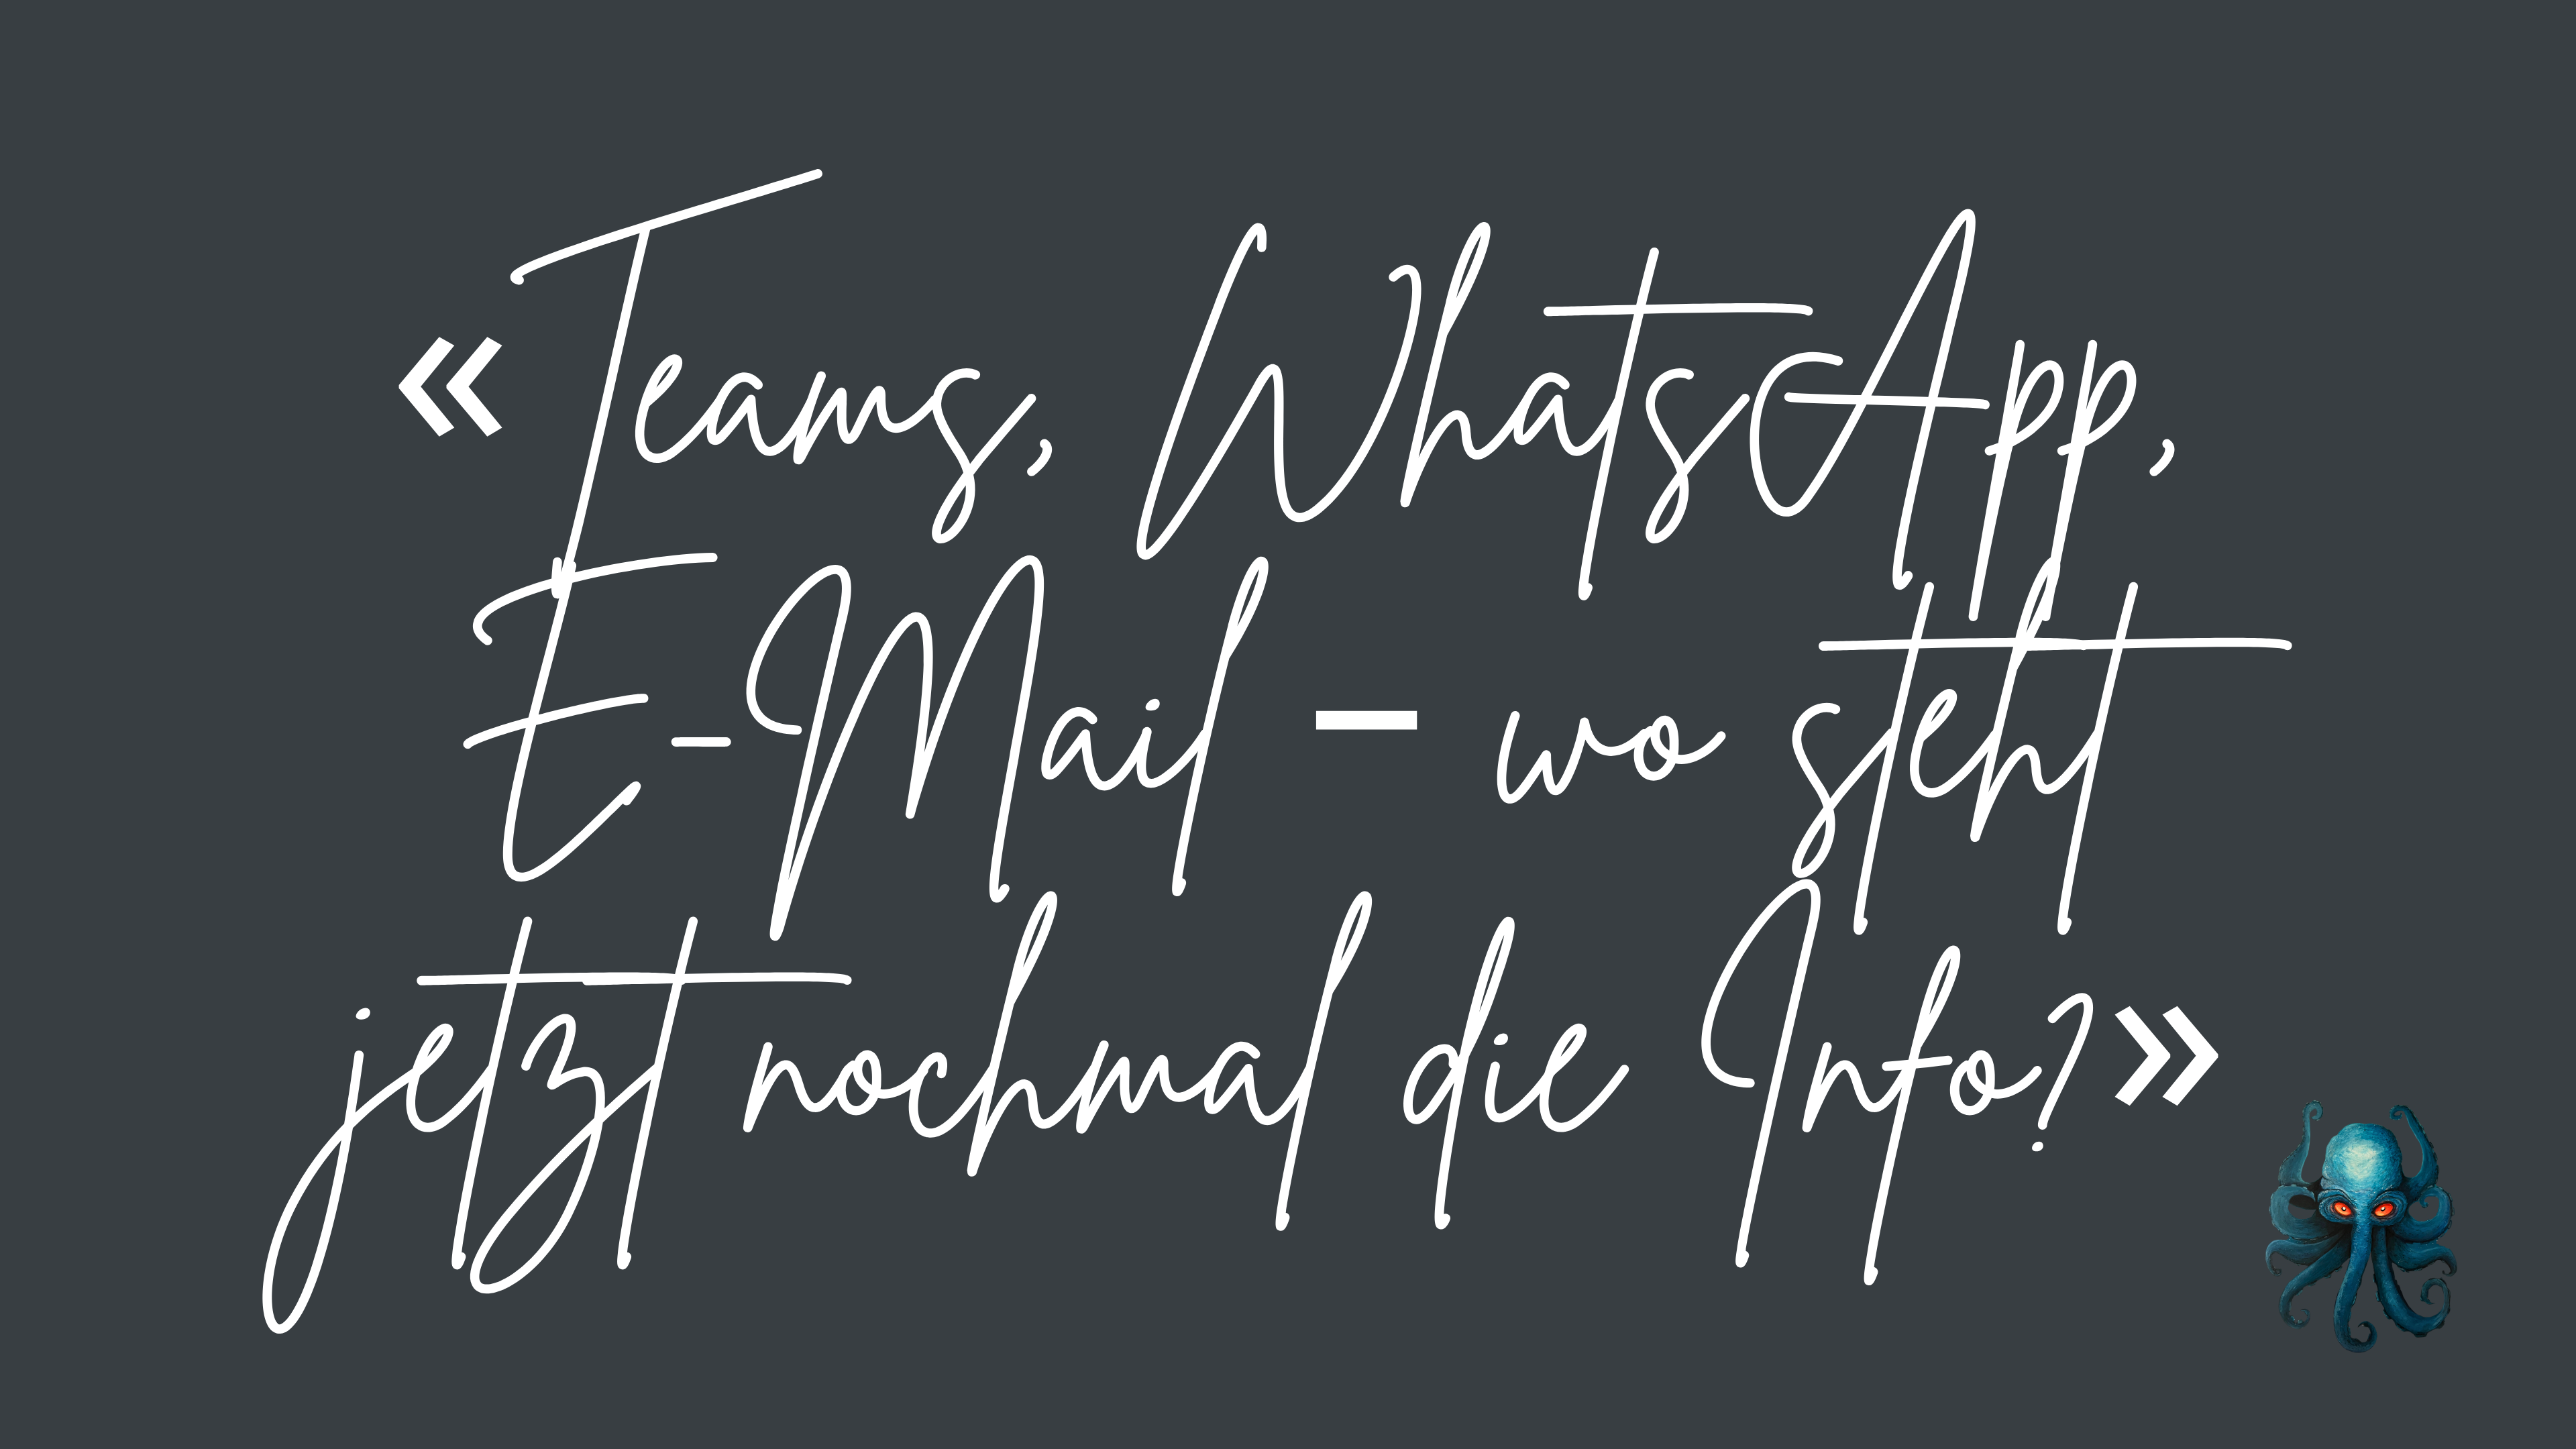 «Teams, WhatsApp,
E-Mail – wo steht
jetzt nochmal die Info?»